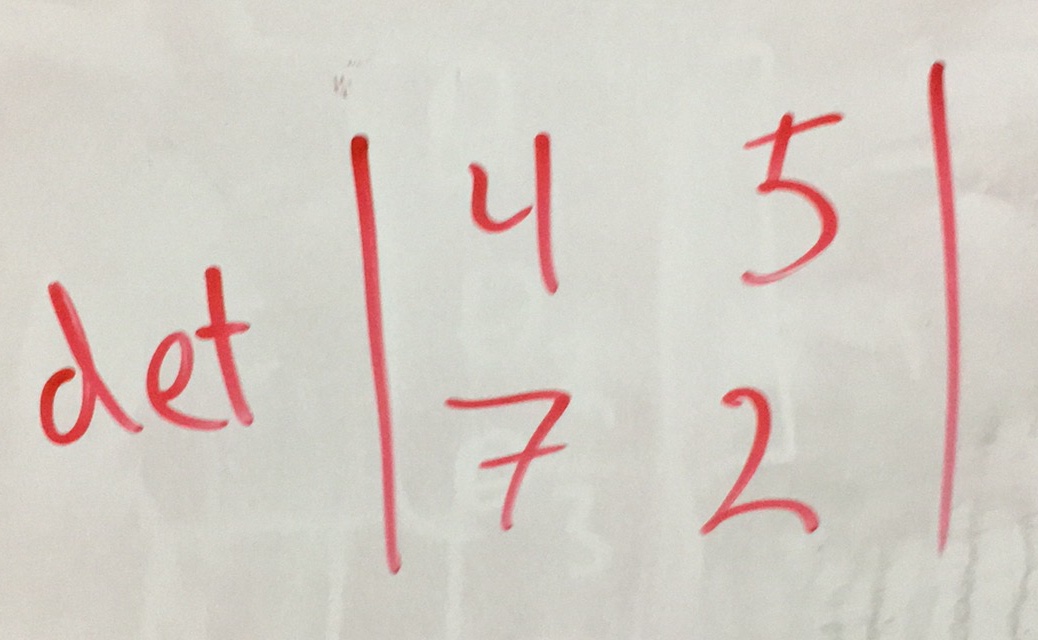 det | 4 5 |
7 2